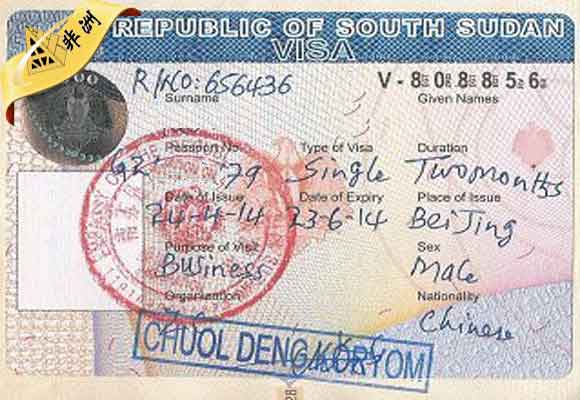 非洲
REPUBLIC OF SOUTH SUDAN
VISA
R/NO: 656436
V - 808856
Surname
Given Names
Passport No. Type of Visa Duration
79 Single Two months
Date of Issue Date of Expiry Place of Issue
24-4-14 23-6-14 BeiJing
Purpose of Visit Sex
Business Male
Organization Nationality
Chinese
CHUOL DENG